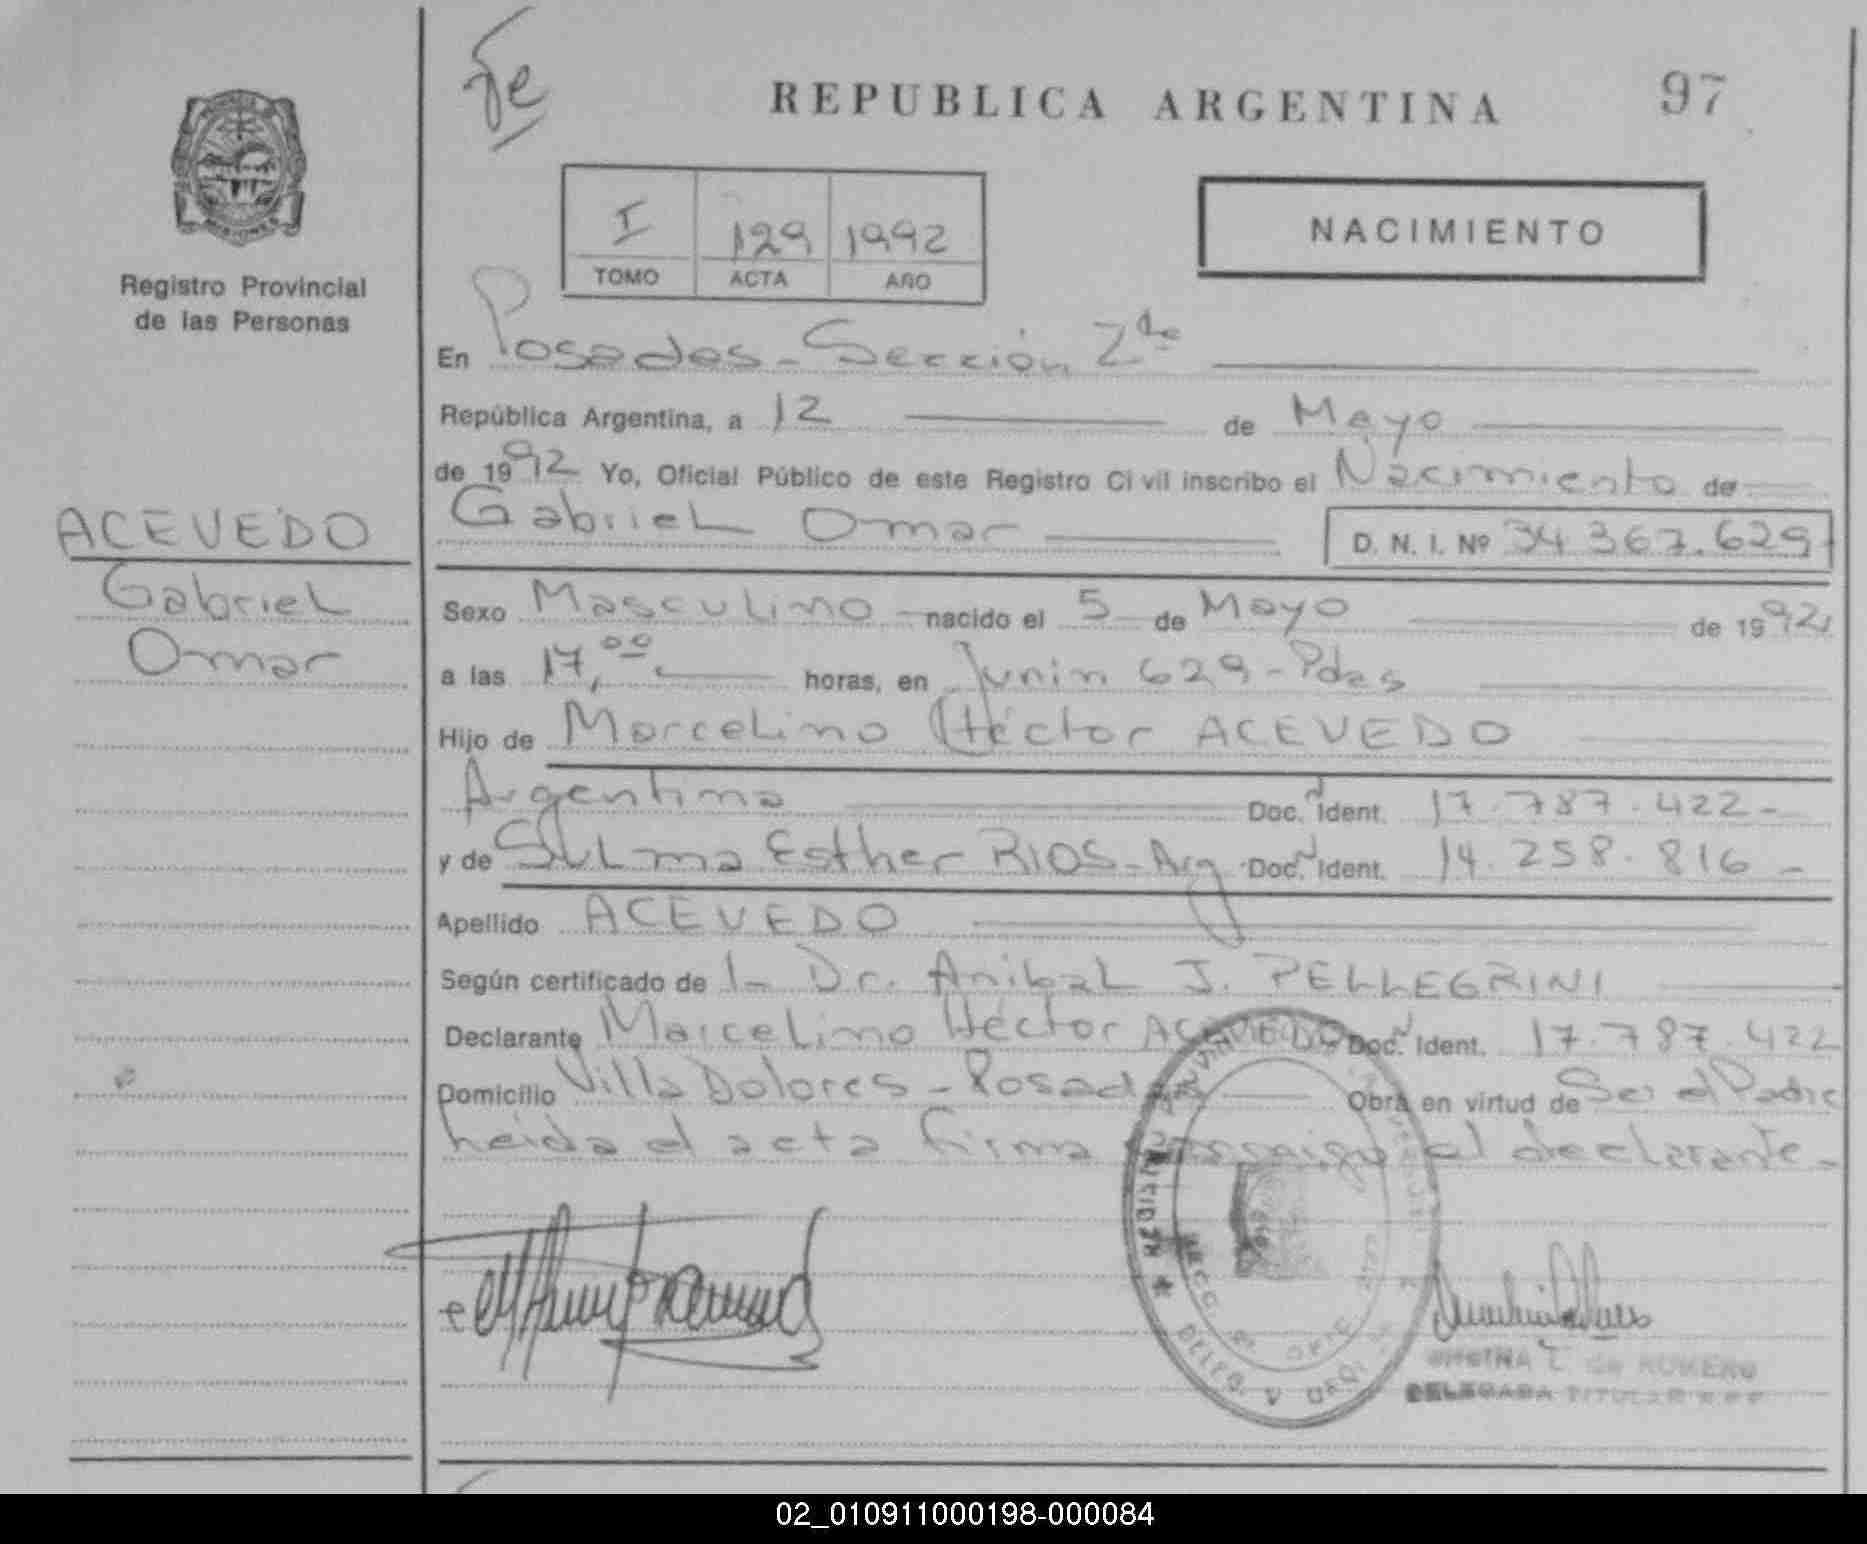 REPUBLICA ARGENTINA
97
MISIONES
Registro Provincial
de las Personas
I 129 1992
TOMO ACTA AÑO
NACIMIENTO
En Posadas - Sección 2da
República Argentina, a 12 de Mayo
de 1992 Yo, Oficial Público de este Registro Civil inscribo el Nacimiento de
Gabriel Omar D. N. I. Nº 34.367.629
ACEVEDO
Gabriel
Omar
Sexo Masculino nacido el 5 de Mayo de 1992
a las 17,00 horas, en Junin 629 - Pdas
Hijo de Marcelino Héctor ACEVEDO
Argentina Doc. Ident. 17.787.422 -
y de Silma Esther RIOS - Arg Doc. Ident. 14.258.816 -
Apellido ACEVEDO
Según certificado de 1- Dr. Anibal J. PELLEGRINI
Declarante Marcelino Héctor ACEVEDO Doc. Ident. 17.787.422
Domicilio Villa Dolores - Posadas Obra en virtud de Ser el Padre
heida el acta firma conmigo el declarante -
ROMERO
DELEGADA TITULAR
02_010911000198-000084